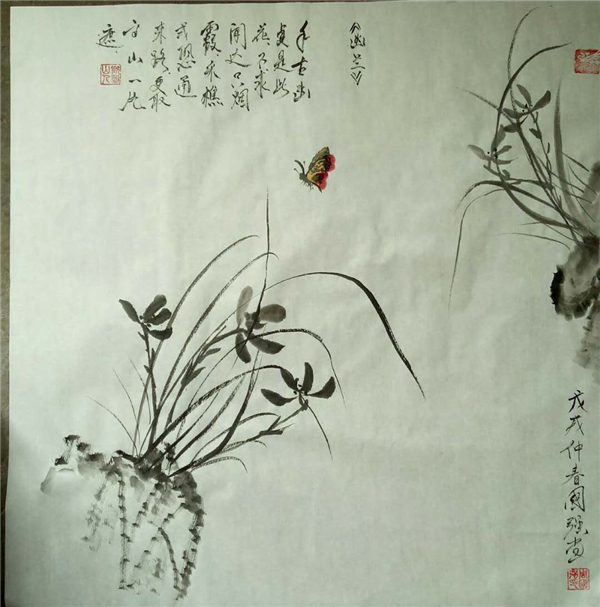 《幽兰》
千古幽
贞是此
花不求
闻达只烟
霞采樵
或恐通
来路更取
高山一片
遮
戊戌仲春国强画